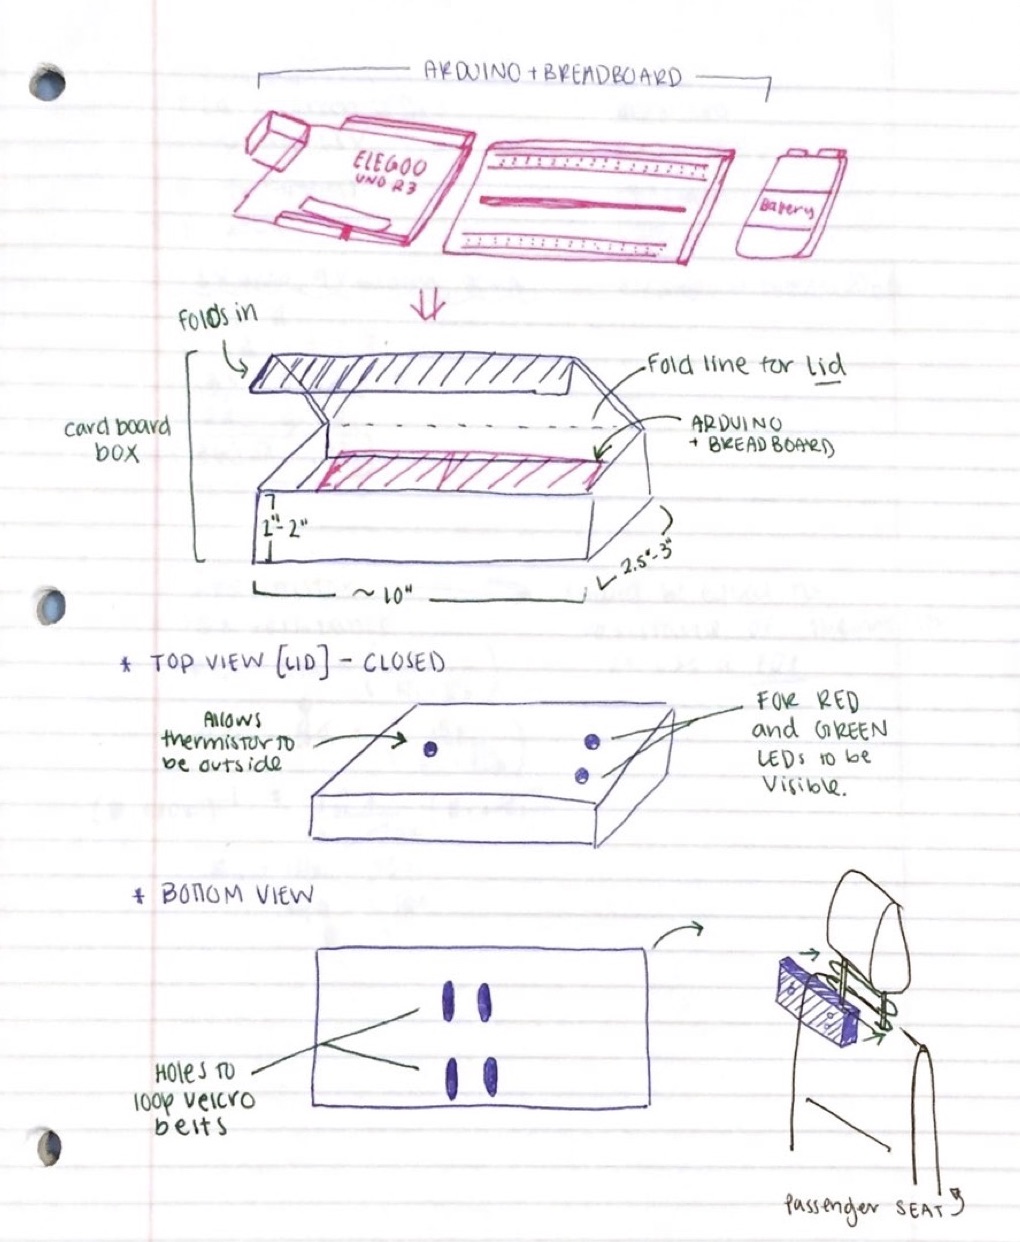 ARDUINO + BREADBOARD
ELEGOO
UNO R3
Battery
Folds in
Fold line for lid
card board
box
ARDUINO
+ BREADBOARD
2"-2"
2.5"-3"
~10"
* TOP VIEW [LID] - CLOSED
Allows
thermistor to
be outside
FOR RED
and GREEN
LEDs to be
Visible.
* BOTTOM VIEW
HOLES TO
loop velcro
belts
Passenger SEAT